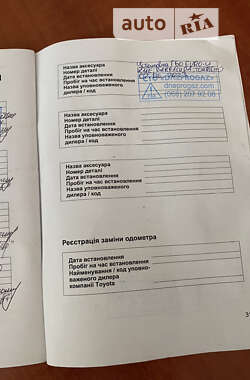 auto RIA
Назва аксесуара
Номер деталі
Дата встановлення
Пробіг на час встановлення
Назва уповноваженого
дилера / код
dneprogaz.com
Назва аксесуара
Номер деталі
Дата встановлення
Пробіг на час встановлення
Назва уповноваженого
дилера / код
Назва аксесуара
Номер деталі
Дата встановлення
Пробіг на час встановлення
Назва уповноваженого
дилера / код
Реєстрація заміни одометра
Дата встановлення
Пробіг на час встановлення
Найменування / код уповно-
важеного дилера
компанії Toyota